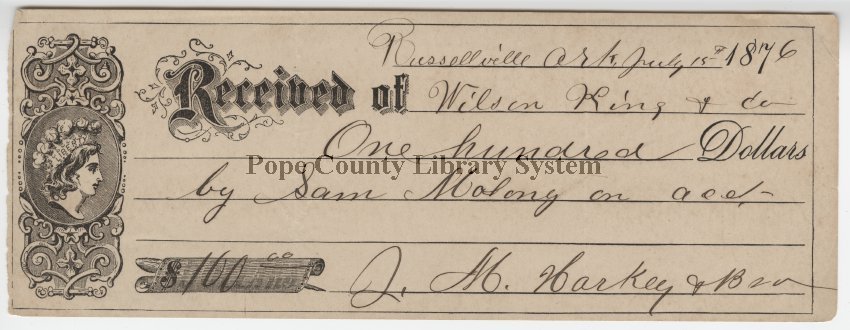 Russellville Ark July 15th 1876
Received of Wilson King & Co
One hundred Dollars
Pope County Library System
by Sam Molony on acct
$ 100 00
J. M. Harkey & Bro
LIBERTY